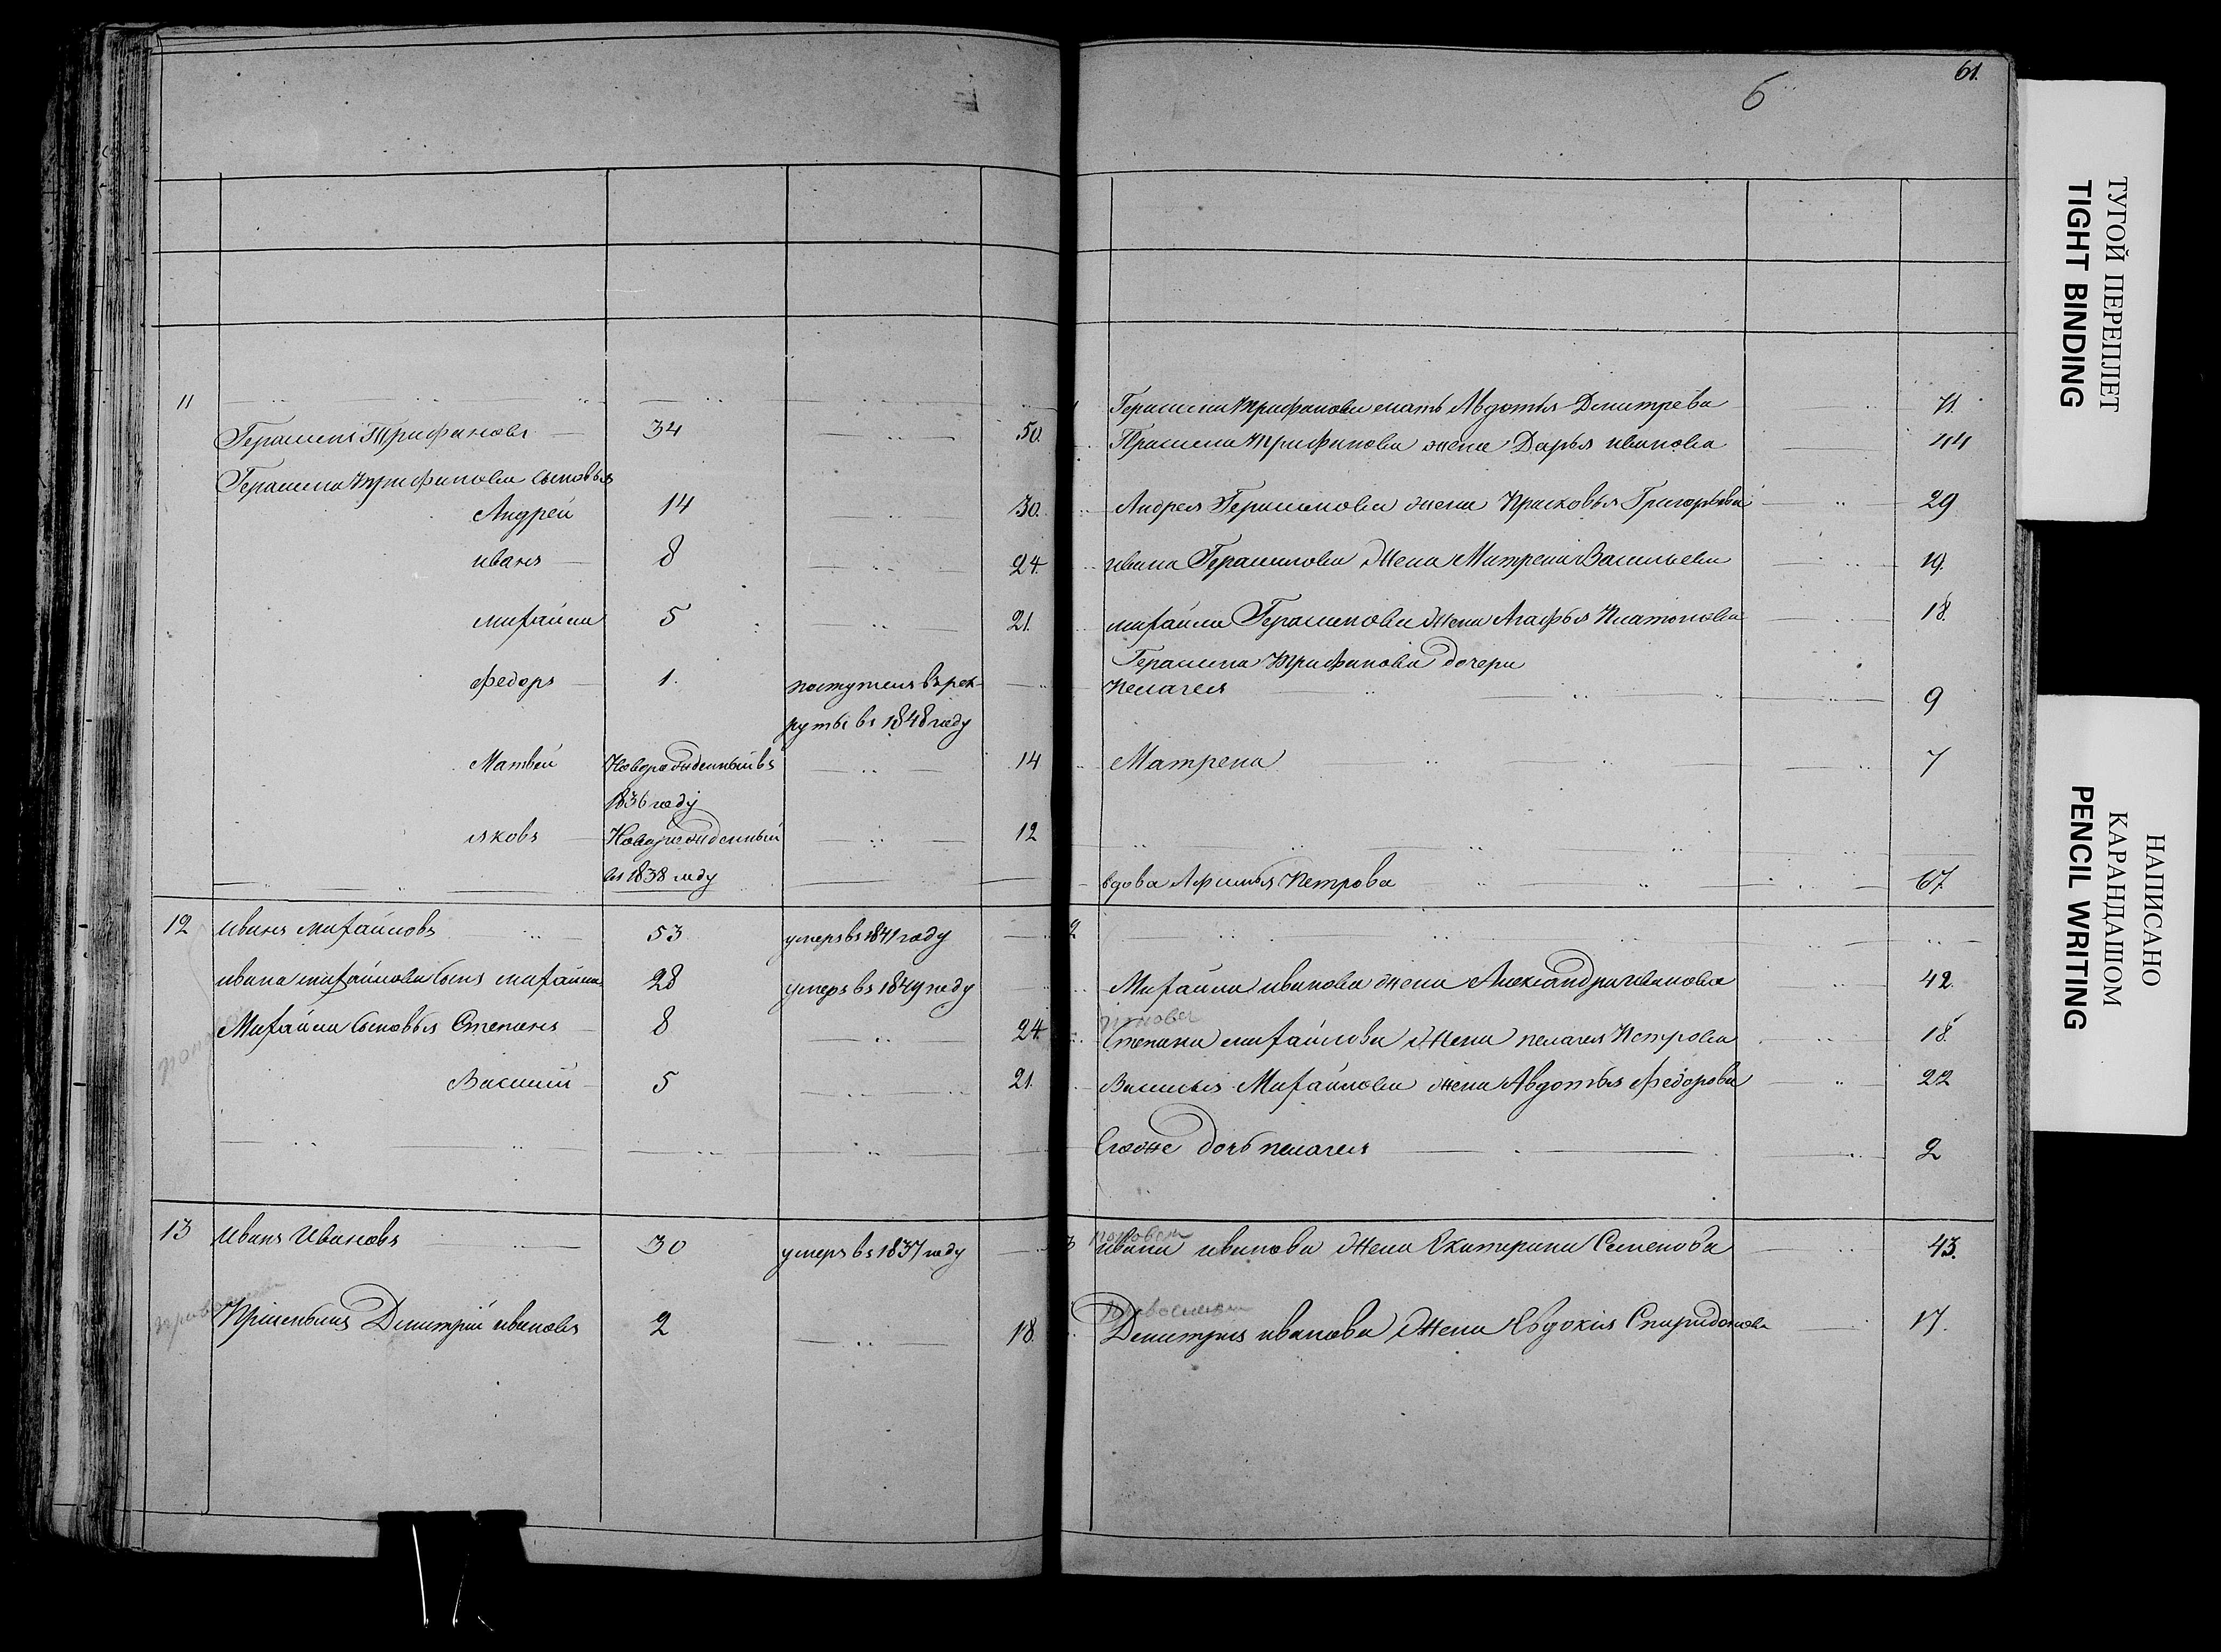 6
61.
11
Герасимъ Трифановъ 34 50.
Герасима Трифанова сыновья
Андрей 14 30.
иванъ 8 24.
михайла 5 21.
федоръ 1. поступилъ въ рек-
руты въ 1848 году
Матвей Новорожденный въ 14
1836 году
яковъ Новорожденный 12
въ 1838 году
12 иванъ михайловъ 53 умеръ въ 1841 году
ивана михайлова сынъ михайла 28 умеръ въ 1849 году
Михайлы сыновья Степанъ 8 24.
Василий 5 21.
13 иванъ Ивановъ 30 умеръ въ 1837 году
Дмитрий ивановъ 2 18.
Герасима Трифанова мать Авдотья Дмитрева 71.
Герасима Трифанова жена Дарья иванова 44
Андрея Герасимова жена Прасковья Григорьева 29
ивана Герасимова жена Матрена Васильева 19.
михайлы Герасимова жена Агафья Платонова 18.
Герасима Трифанова дочери
пелагея 9
Матрена 7
вдова Афимья Петрова 67.
2
Михайлы иванова жена Александра иванова 42.
попова
Степана михайлова жена пелагея Петрова 18.
Василья Михайлова жена Авдотья федорова 22
Егоже дочь пелагея 2
3 ивана иванова жена Екатерина Семенова 43.
Дмитрия иванова жена Евдокия Спиридонова 17.
ТУГОЙ ПЕРЕПЛЕТ
TIGHT BINDING
НАПИСАНО
КАРАНДАШОМ
PENCIL WRITING